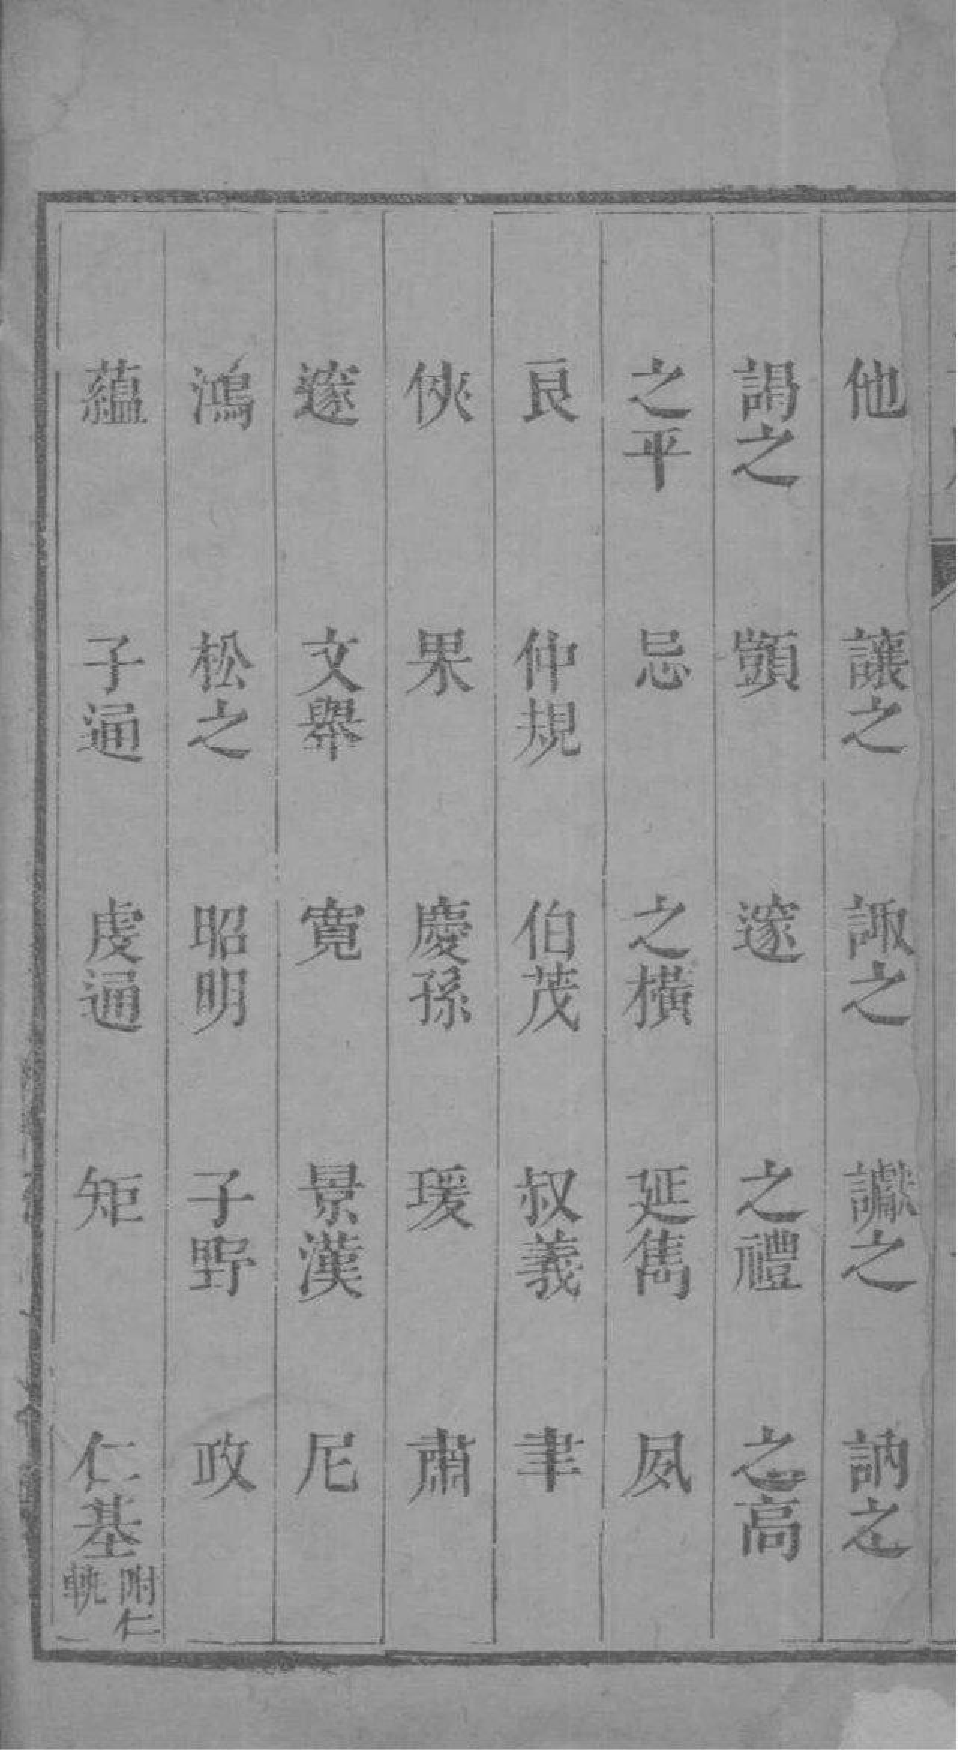 他 讓之 諏之 讞之 訥之
謁之 顗 邃 之禮 之高
之平 忌 之橫 延雋 夙
良 仲規 伯茂 叔義 聿
俠 果 慶孫 瑗 肅
邃 文舉 寬 景漢 尼
鴻 松之 昭明 子野 政
蘊 子通 虔通 矩 仁基 附仁軌